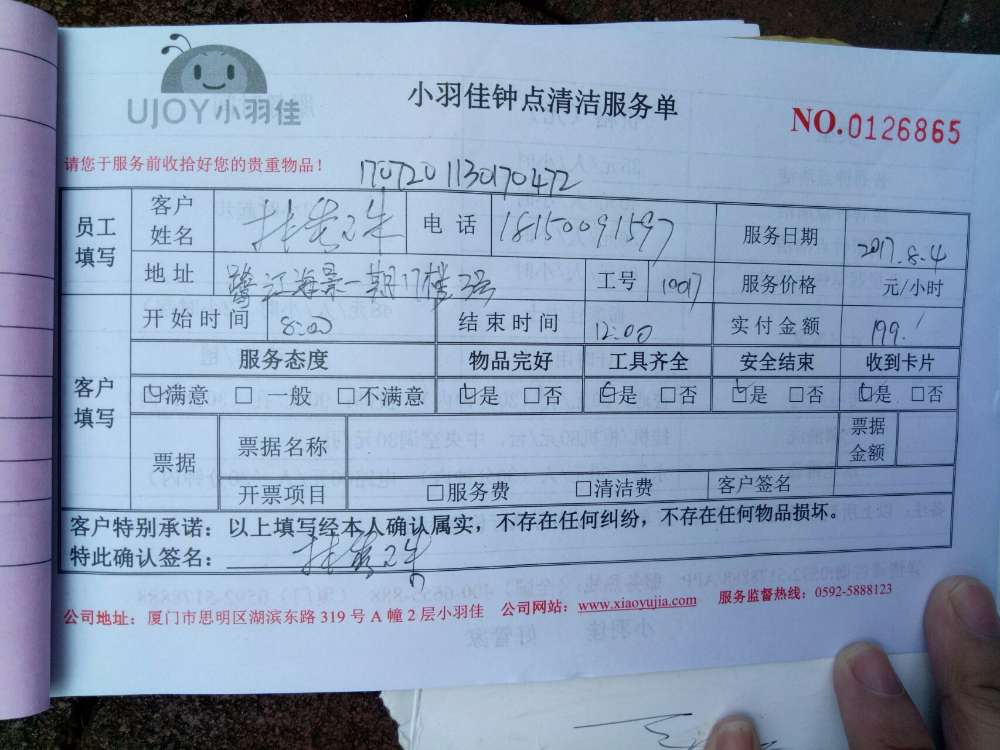 UJOY小羽佳
小羽佳钟点清洁服务单
NO.0126865
请您于服务前收拾好您的贵重物品!
1707201130170472
员工填写 客户姓名 电话 18150091597 服务日期 2017.8.4
地址 鹭江海景一期17楼 工号 10017 服务价格 元/小时
客户填写 开始时间 8:00 结束时间 12:00 实付金额 199.
服务态度 物品完好 工具齐全 安全结束 收到卡片
☑满意 □ 一般 □不满意 ☑是 □否 ☑是 □否 ☑是 □否 ☑是 □否
票据 票据名称 票据金额
开票项目 □服务费 □清洁费 客户签名
客户特别承诺:以上填写经本人确认属实,不存在任何纠纷,不存在任何物品损坏。
特此确认签名:
公司地址:厦门市思明区湖滨东路 319 号 A 幢 2 层小羽佳 公司网站:www.xiaoyujia.com 服务监督热线:0592-5888123